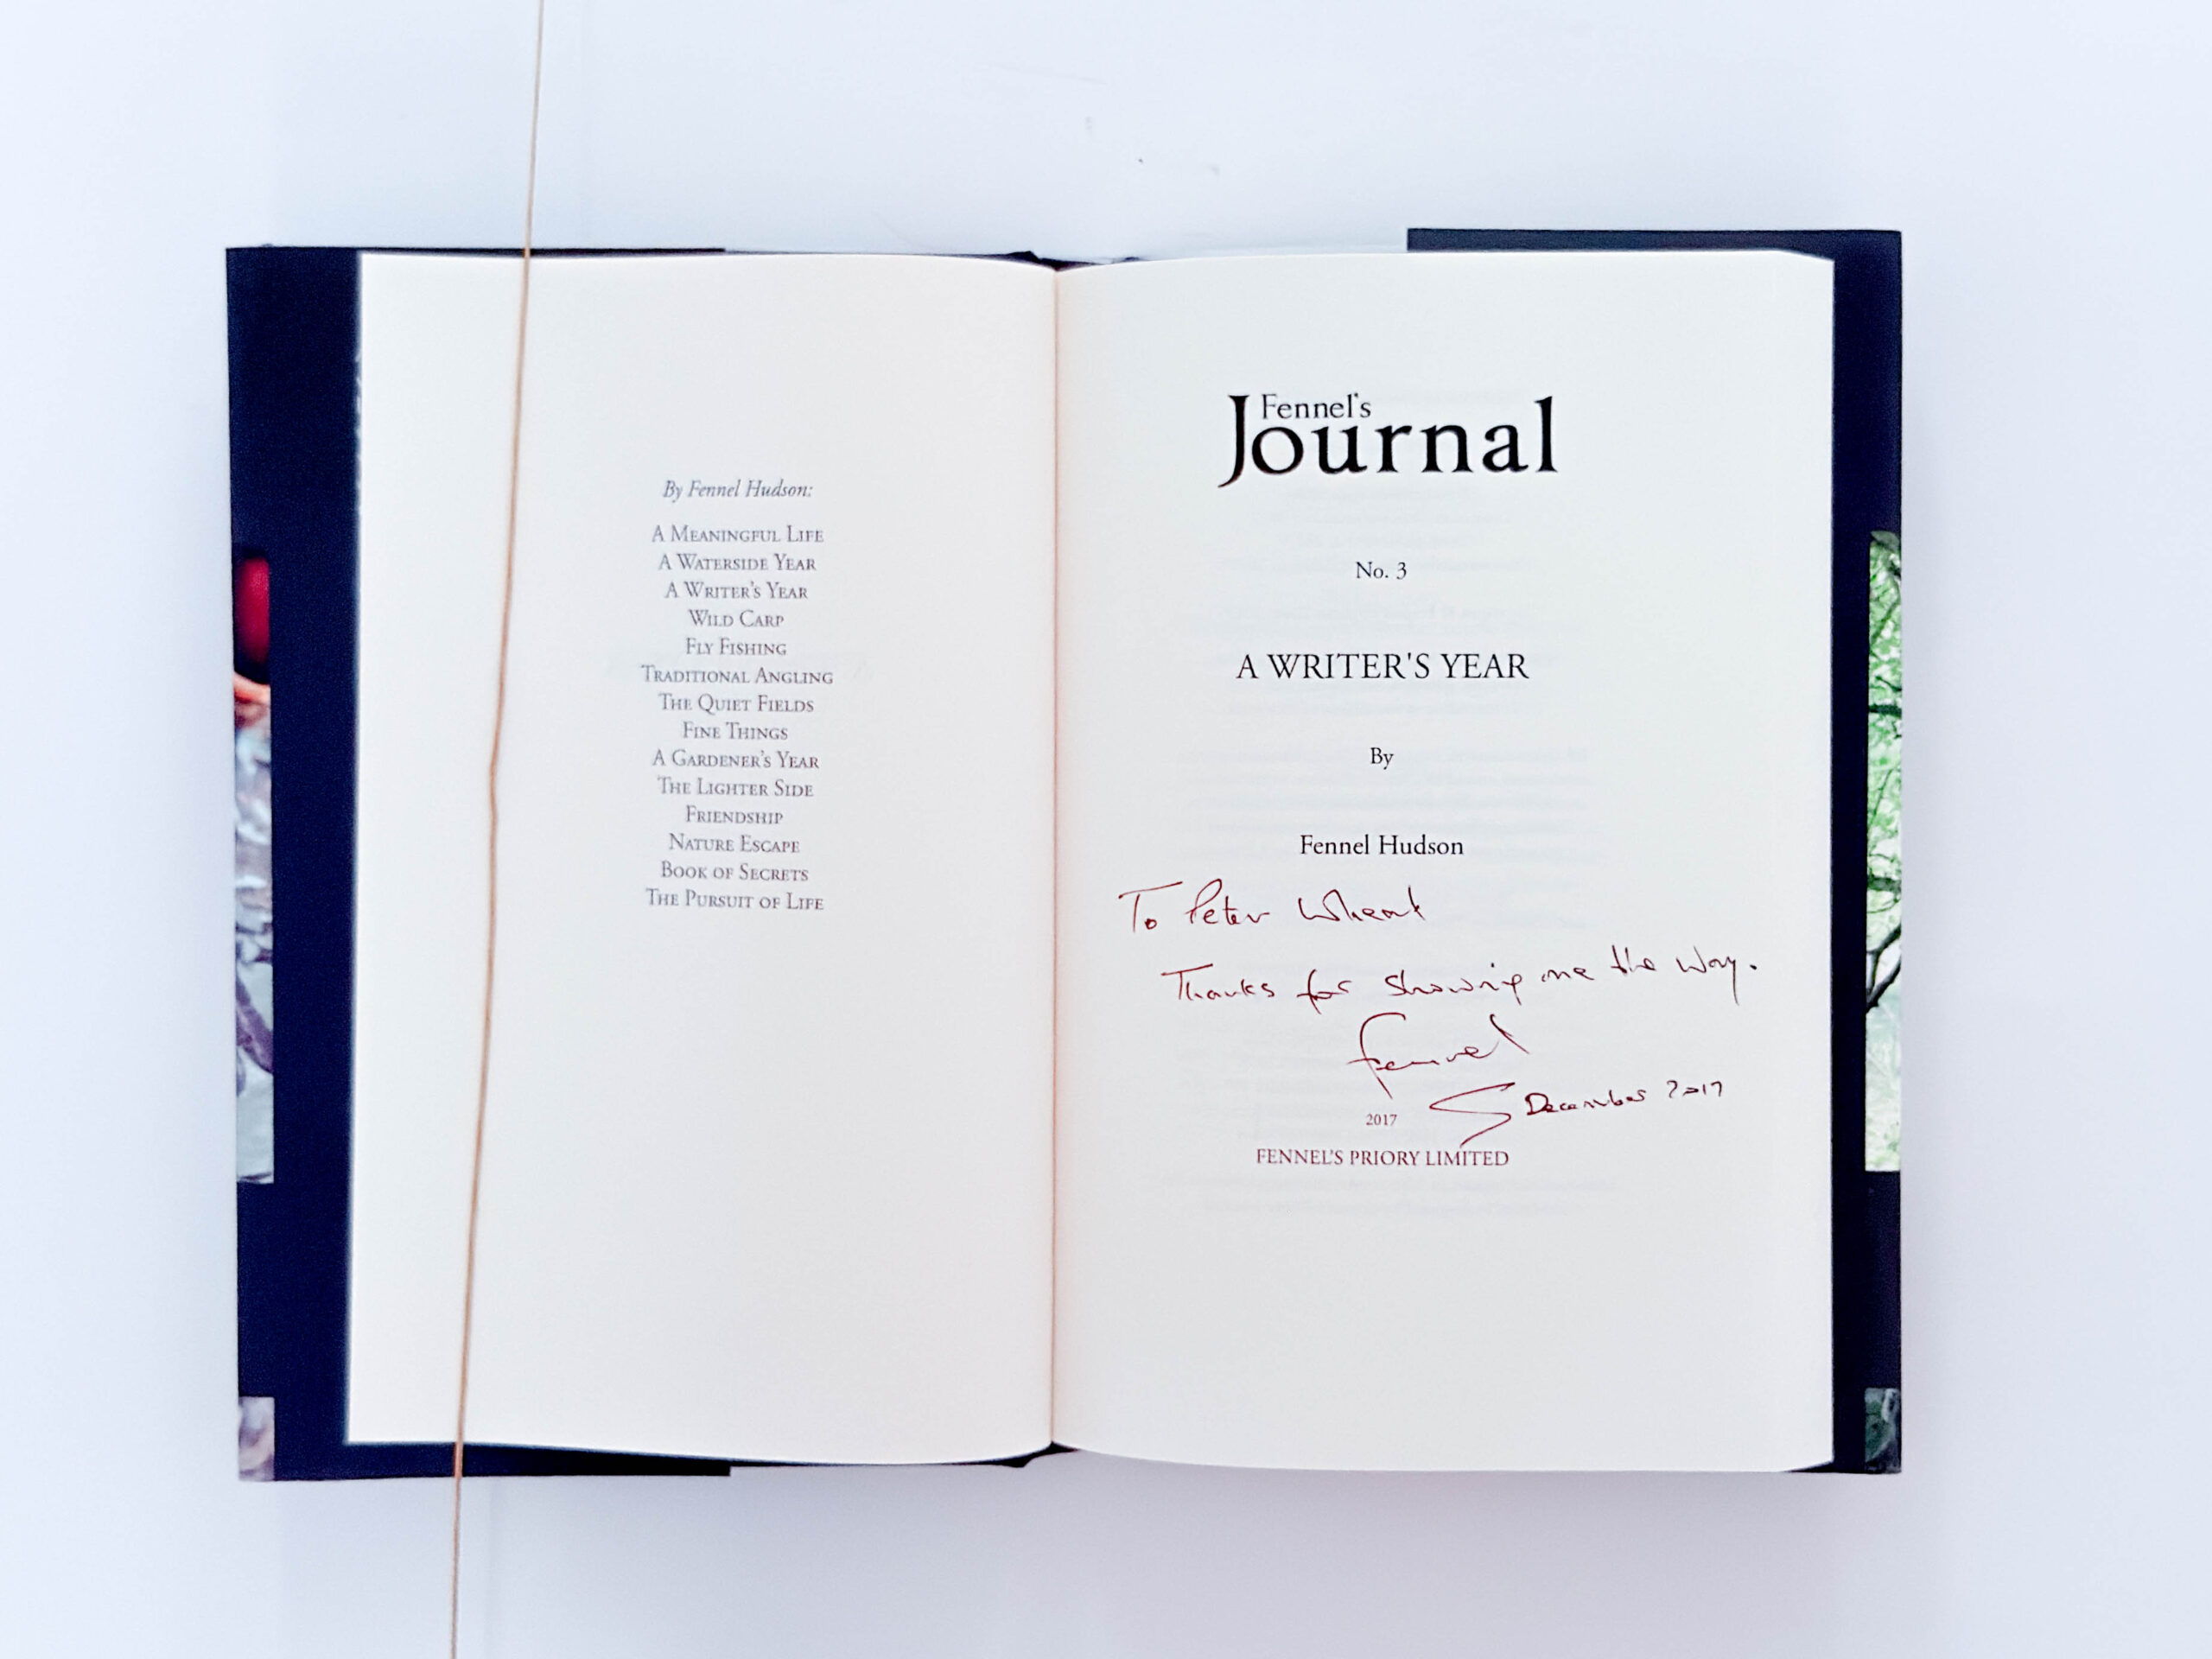 By Fennel Hudson:
A MEANINGFUL LIFE
A WATERSIDE YEAR
A WRITER'S YEAR
WILD CARP
FLY FISHING
TRADITIONAL ANGLING
THE QUIET FIELDS
FINE THINGS
A GARDENER'S YEAR
THE LIGHTER SIDE
FRIENDSHIP
NATURE ESCAPE
BOOK OF SECRETS
THE PURSUIT OF LIFE
Fennel's
Journal
No. 3
A WRITER'S YEAR
By
Fennel Hudson
To Peter Wheat
Thanks for showing me the way.
Fennel
December 2017
2017
FENNEL'S PRIORY LIMITED